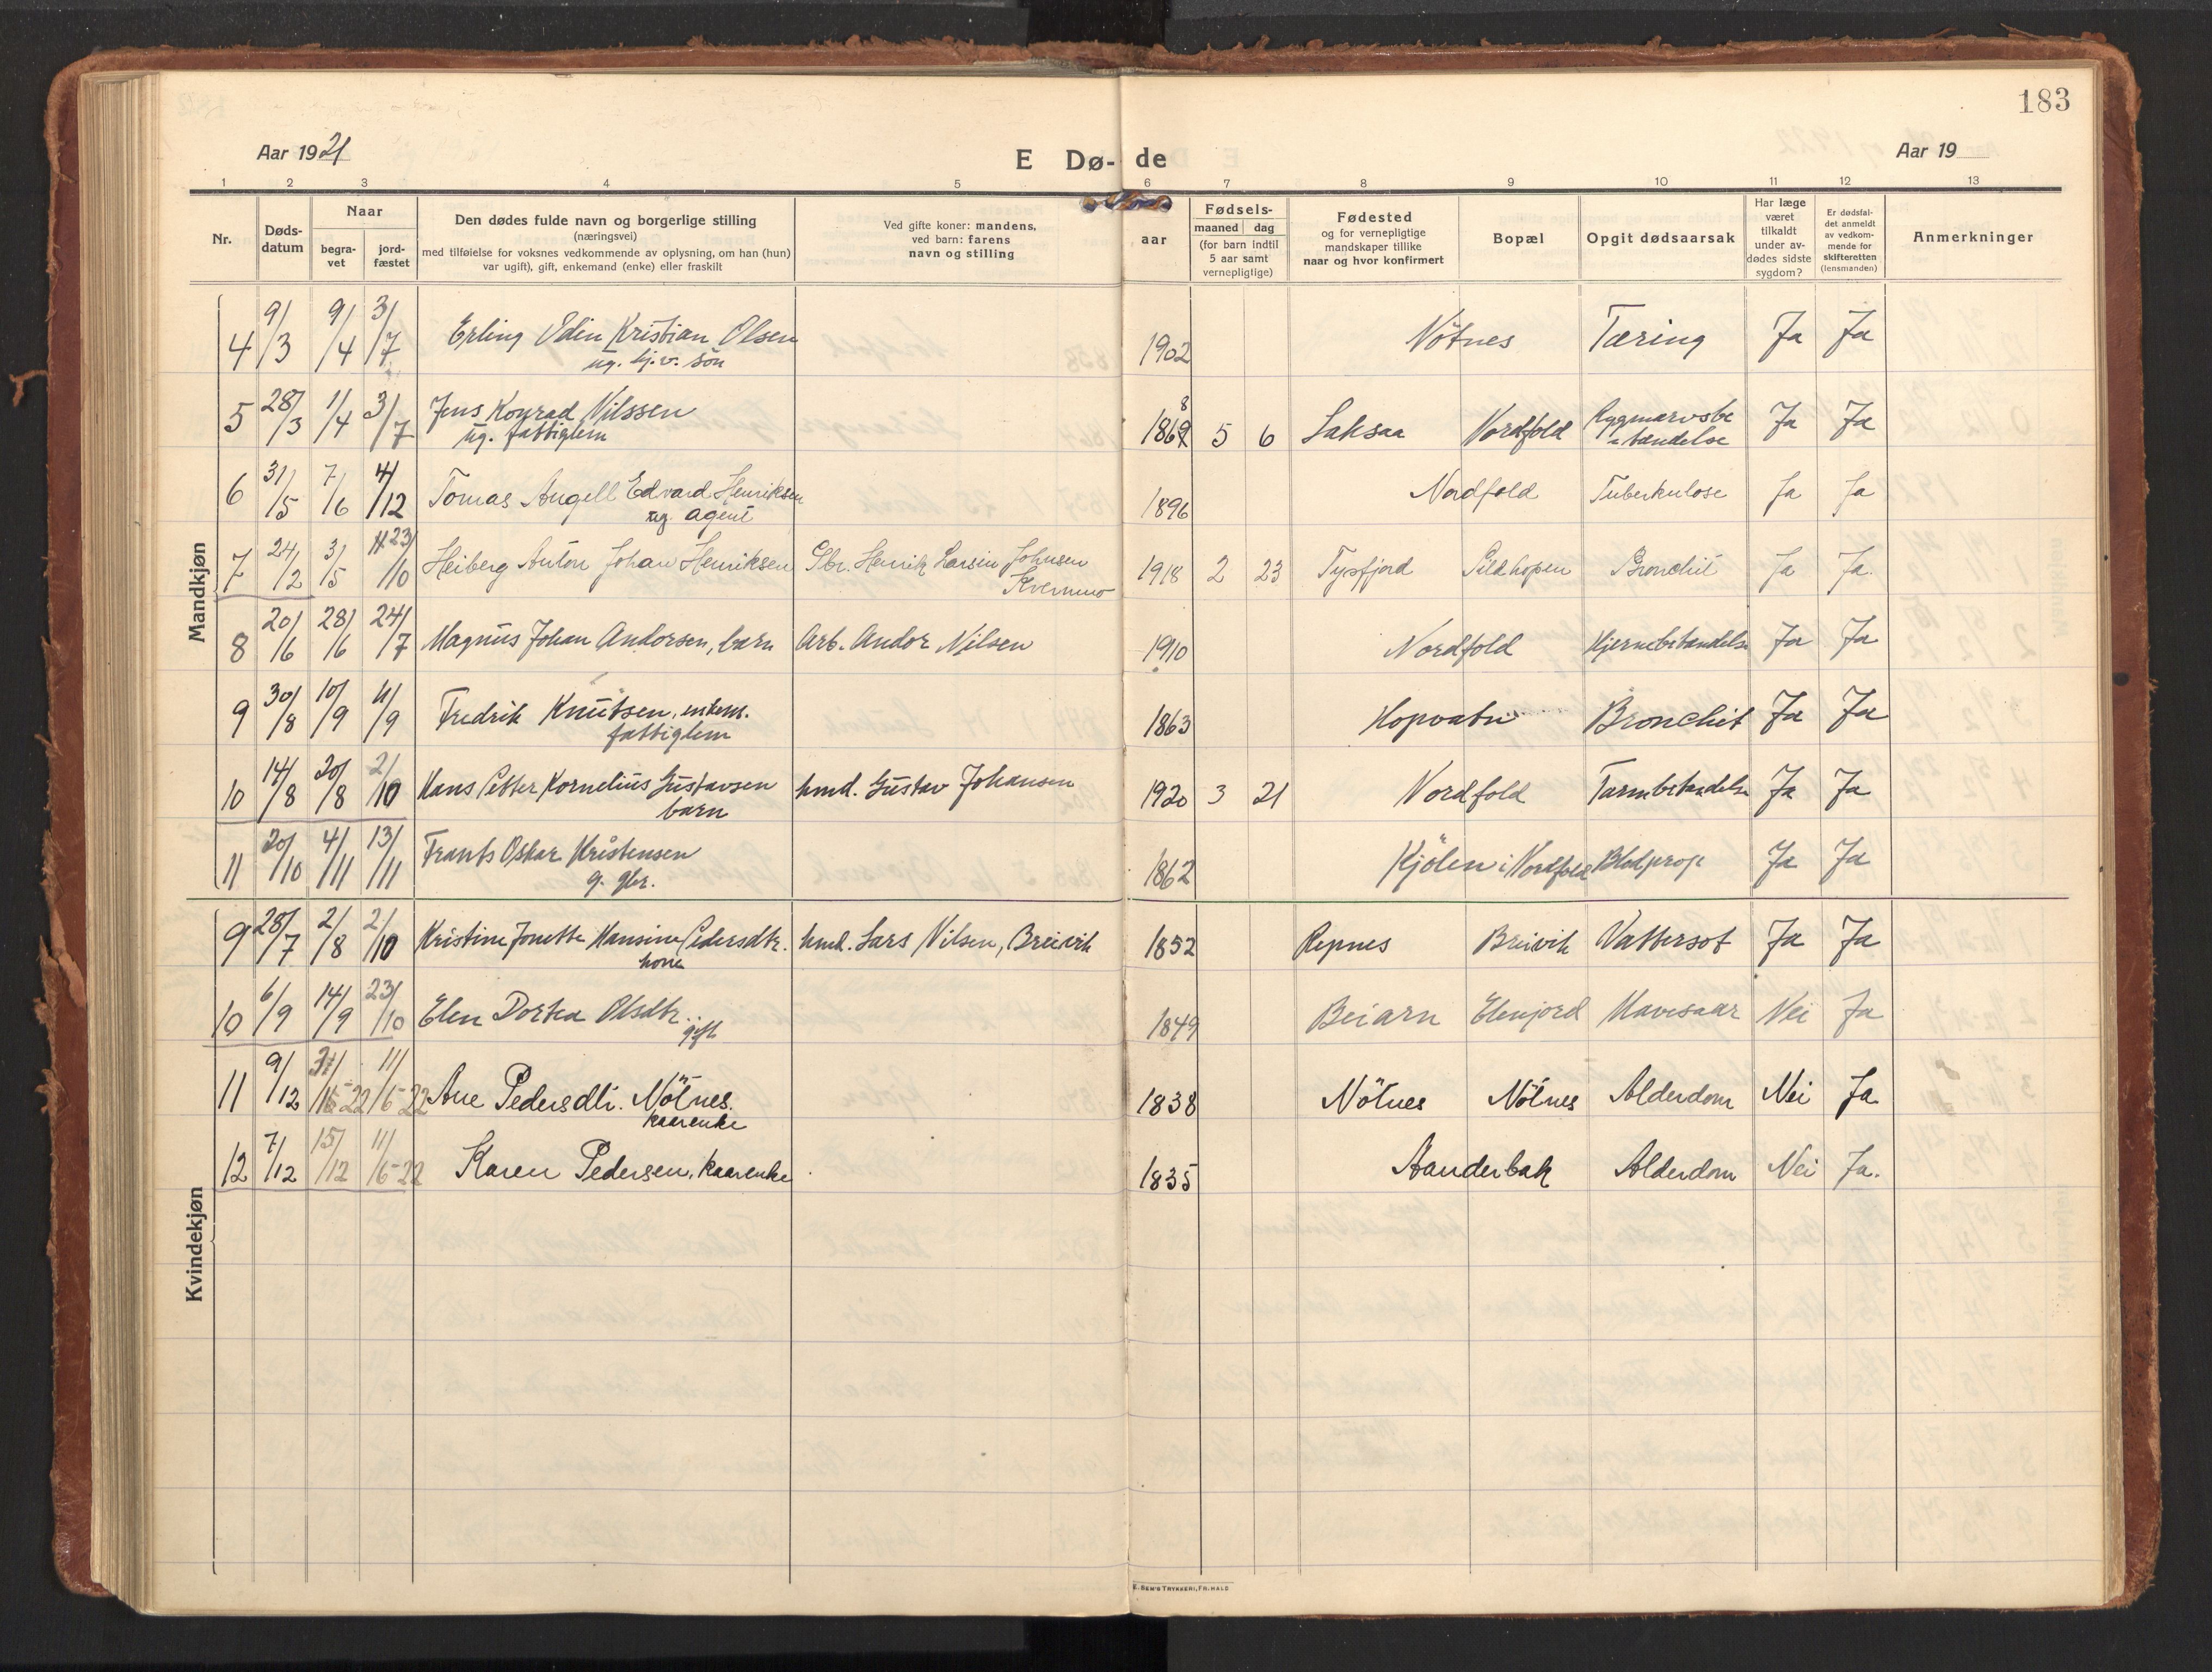 183
Aar 1921 E Dø- de Aar 19
1 2 3 4 5 6 7 8 9 10 11 12 13
Nr.
Døds-
datum
Naar
begra-
vet
jord-
fæstet
Den dødes fulde navn og borgerlige stilling
(næringsvei)
med tilføielse for voksnes vedkommende av oplysning, om han (hun)
var ugift), gift, enkemand (enke) eller fraskilt
Ved gifte koner: mandens,
ved barn: farens
navn og stilling
aar
Fødsels-
maaned dag
(for barn indtil
5 aar samt
vernepligtige)
Fødested
og for vernepligtige
mandskaper tillike
naar og hvor konfirmert
Bopæl
Opgit dødsaarsak
Har læge
været
tilkaldt
under av-
dødes sidste
sygdom?
Er dødsfal-
det anmeldt
av vedkom-
mende for
skifteretten
(lensmanden)
Anmerkninger
Mandkjøn
4 9/3 9/4 3/7 Erling Edin Kristian Olsen 1902 Nötnes Tæring Ja Ja
ug. tj.v. søn
5 28/3 1/4 3/7 Jens Konrad Nilssen 1869 8 5 6 Laksaa Nordfold Rygmarvsbe Ja Ja
ug. fattiglem - tændelse
6 31/5 7/6 4/12 Tomas Angell Edvard Henriksen 1896 Nordfold Tuberkulose Ja Ja
ug. agent
7 24/2 3/5 23/10 Heiberg Anton Johan Henriksen Gbr. Henrik Larsin Johnsen 1918 2 23 Tysfjord Sildhopen Bronchit Ja Ja.
Kvernmo
8 20/6 28/6 24/7 Magnus Johan Andorsen, barn Arb. Andor Nilsen 1910 Nordfold Hjernebetændelse Ja Ja
9 30/8 10/9 11/9 Fredrik Knutsen, enkem. 1863 Hopvatn Bronchit Ja Ja
fattiglem
10 14/8 20/8 2/10 Hans Petter Kornelius Gustavsen hmd. Gustav Johansen 1920 3 21 Nordfold Tarmbetændelse Ja Ja
barn
11 20/10 4/11 13/11 Frants Oskar Kristensen 1862 Kjölen i Nordfold Blodprop Ja Ja
g. gbr.
Kvindekjøn
9 28/7 2/8 2/10 Kristine Jonette Hansine Pedersdtr. hmd. Lars Nilsen, Breivik 1852 Repnes Breivik Vattersot Ja Ja
kone
10 6/9 14/9 23/10 Elen Dortea Olsdtr. 1849 Beiarn Elenjord Mavesaar Nei Ja
gift
11 9/12 -22 11/6-22 Ane Pedersdtr. Nötnes. 1838 Nötnes Nötnes Alderdom Nei Ja
kaarenke
12 7/12 15/12 11/6-22 Karen Pedersen, kaarenke 1835 Aanderbak Alderdom Nei Ja.
E. SEM'S TRYKKERI, FR.HALD